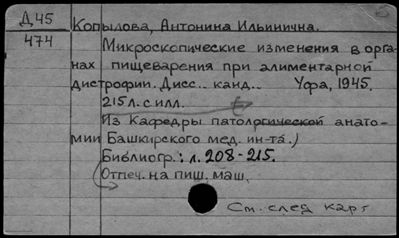 Д45
474
Копылова, Антонина Ильинична.
Микроскопические изменения в орга-
нах пищеварения при алиментарной
дистрофии. Дисс.. канд.. Уфа, 1945.
215 л. с илл.
Из Кафедры патологической анато-
мии Башкирского мед. ин-та.)
Библиогр.: л. 208-215.
Отпеч. на пиш. маш.
См. след карт